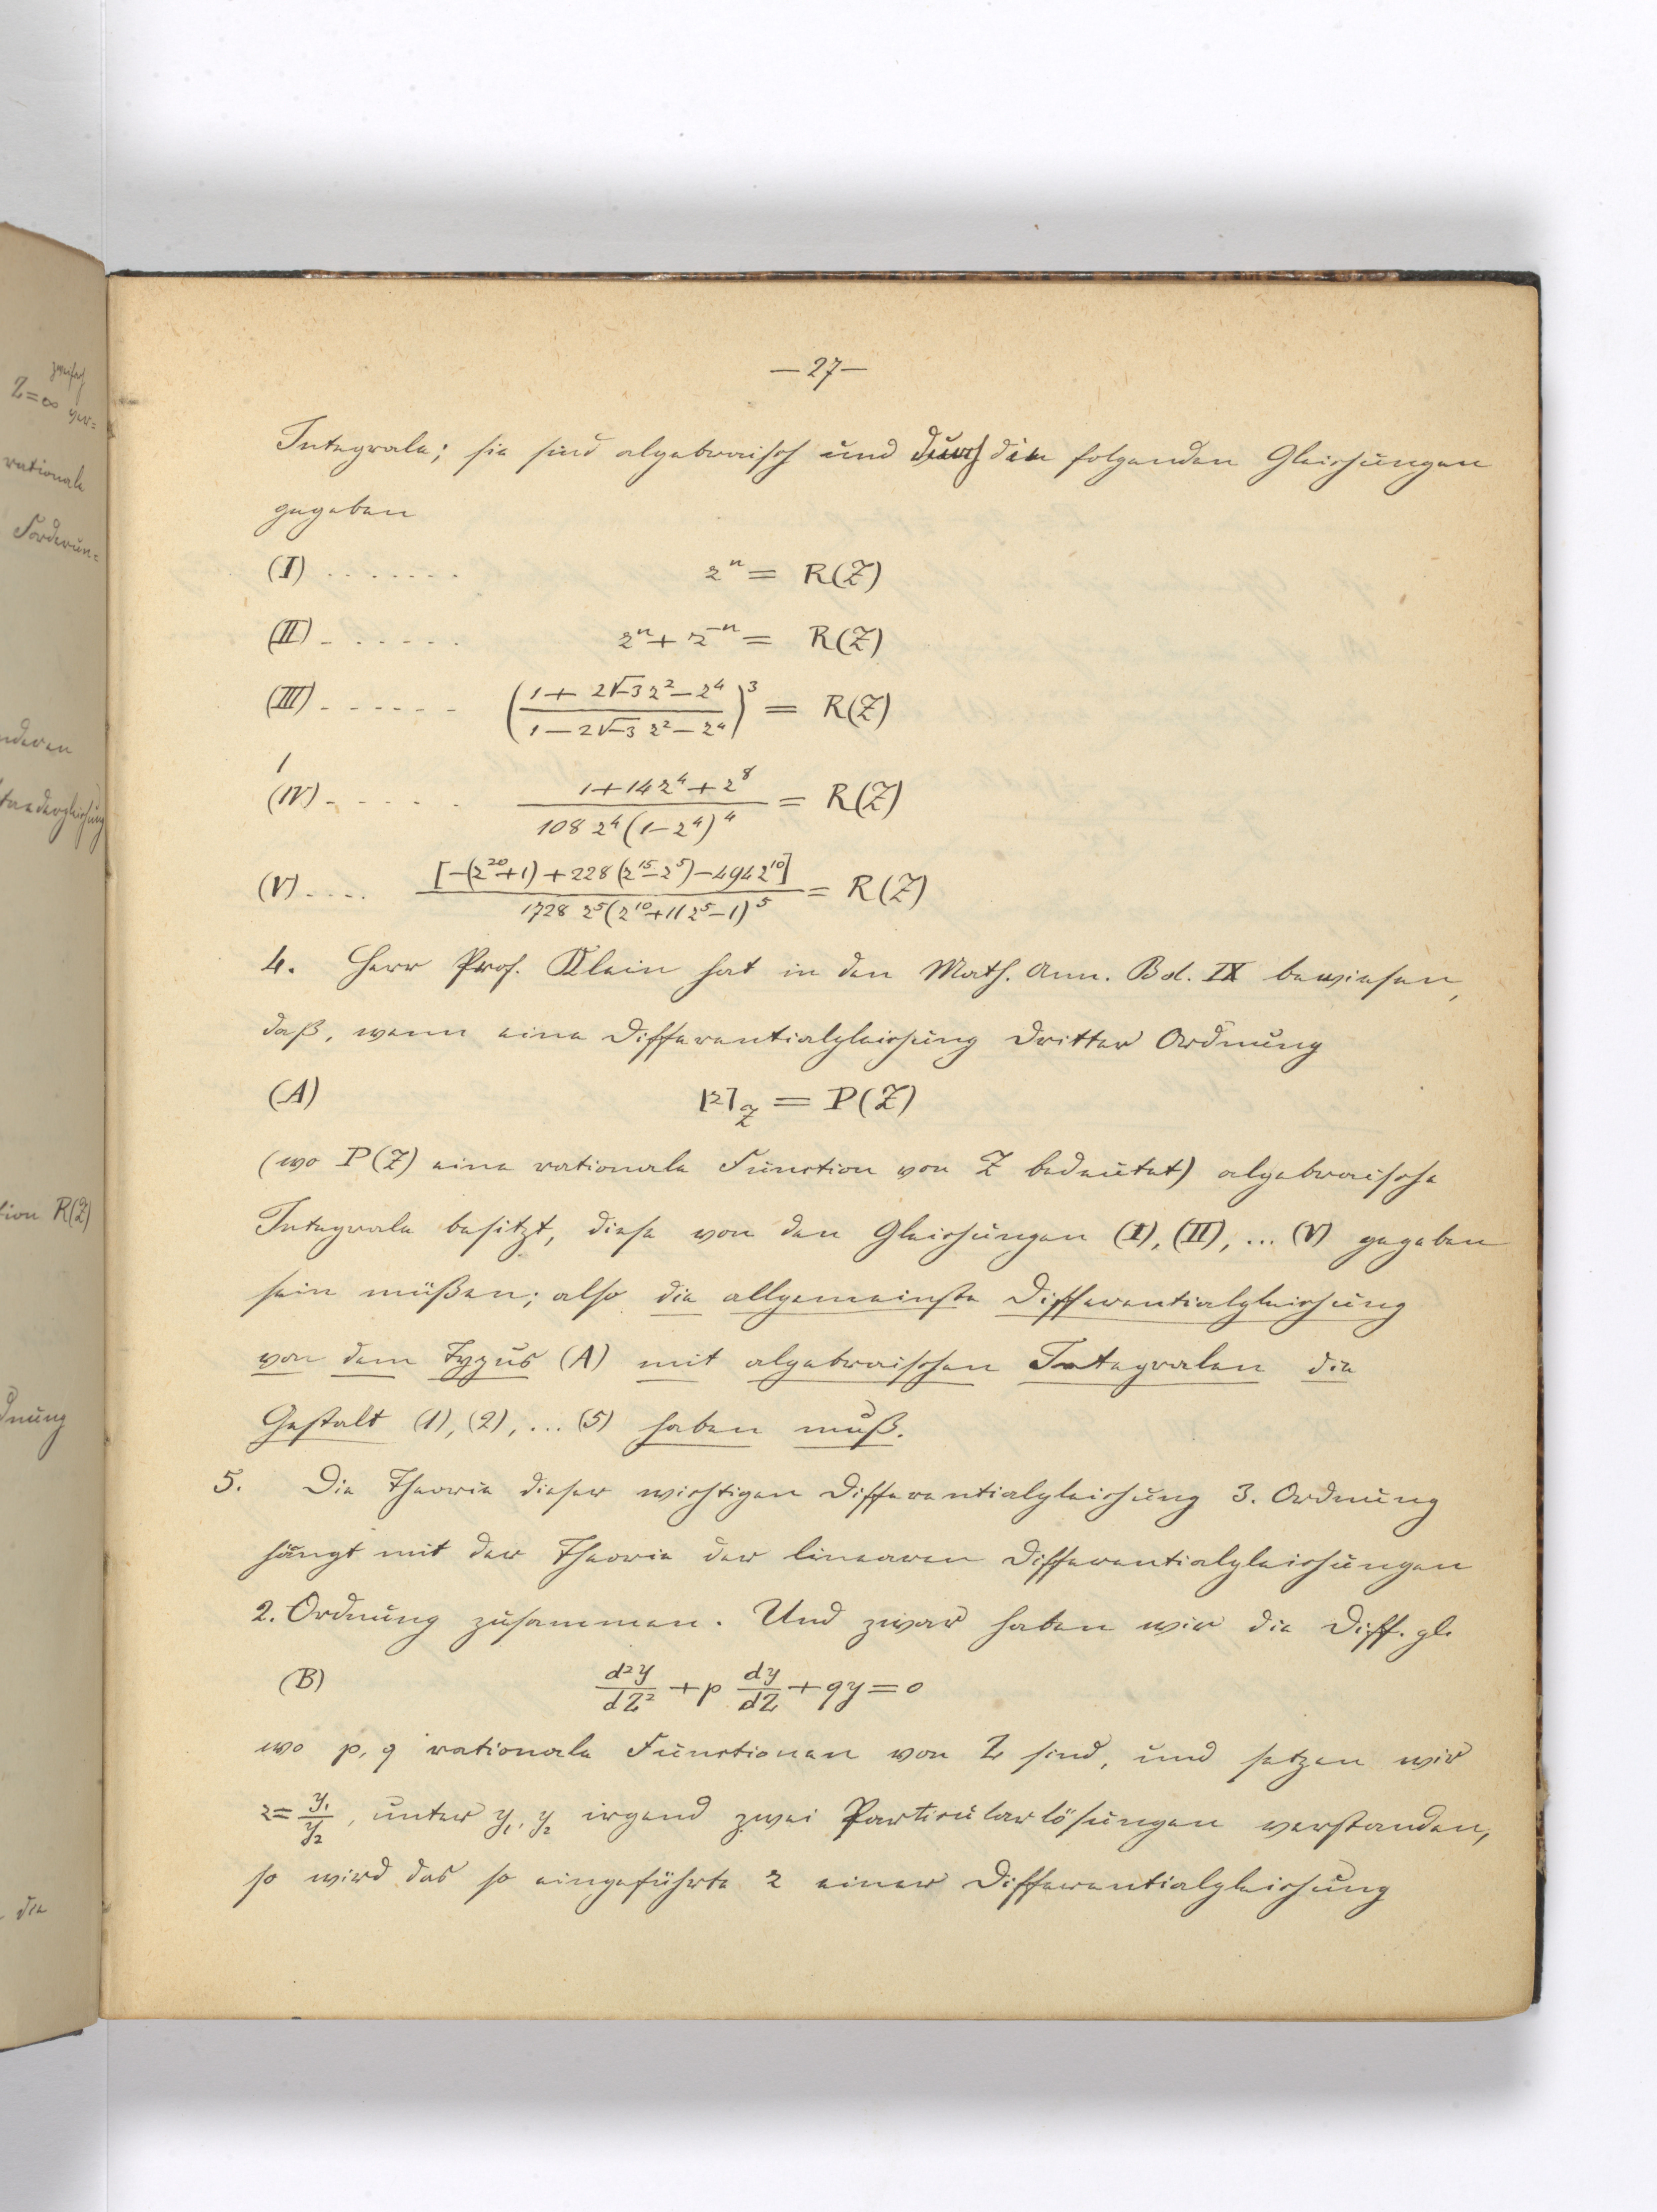 —27—
Integrale; sie sind algebraisch und durch die folgenden Gleichungen
gegeben
(I) ....... z^n = R(Z)
(II) ...... z^n + z^{-n} = R(Z)
(III) ...... ((1 + 2√-3 z^2 - z^4)/(1 - 2√-3 z^2 - z^4))^3 = R(Z)
(IV) ..... (1 + 14z^4 + z^8)/(108 z^4 (1 - z^4)^4) = R(Z)
(V) .... [-(z^{20}+1) + 228(z^{15} - z^5) - 494z^{10}]/(1728 z^5 (z^{10} + 11z^5 - 1)^5) = R(Z)
4. Herr Prof. Klein hat in den Math. Ann. Bd. IX bewiesen,
daß, wenn eine Differentialgleichung dritter Ordnung
(A) [z]_Z = P(Z)
(wo P(Z) eine rationale Function von Z bedeutet) algebraische
Integrale besitzt, diese von den Gleichungen (I), (II), ... (V) gegeben
sein müßen; also die allgemeinste Differentialgleichung
von dem Typus (A) mit algebraischen Integralen die
Gestalt (1), (2), ... (5) haben muß.
5. Die Theorie dieser wichtigen Differentialgleichung 3. Ordnung
hängt mit der Theorie der linearen Differentialgleichungen
2. Ordnung zusammen. Und zwar haben wir die Diff. gl.
(B) d^2y/dZ^2 + p dy/dZ + qy = 0
wo p, q rationale Functionen von Z sind, und setzen wir
z = y_1/y_2, unter y_1, y_2 irgend zwei Particularlösungen verstanden,
so wird das so eingeführte z einer Differentialgleichung
zweifach
Z=∞ ver=
rationale
Forderun=
nderen
tandergleichung
tion R(Z)
dnung
die